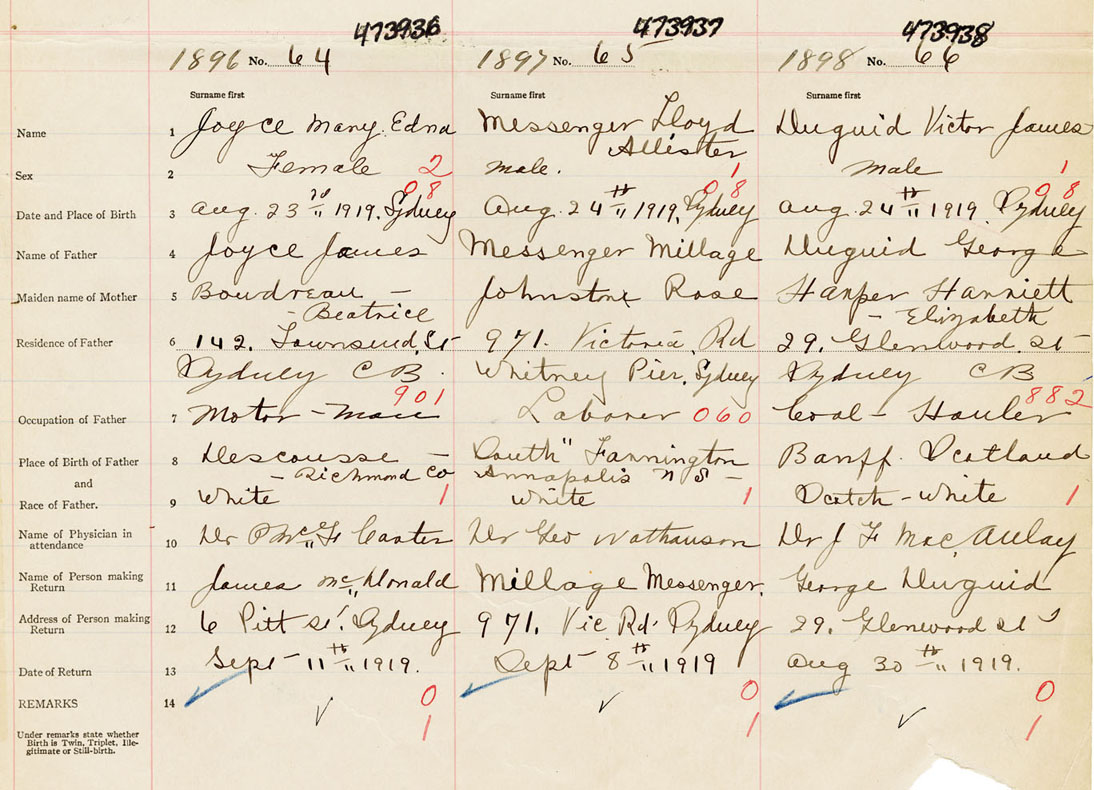 473936 473937 473938
1896 No. 64 1897 No. 65 1898 No. 66
Surname first Surname first Surname first
Name 1 Joyce Mary Edna Messenger Lloyd Duguid Victor James
Allister
Sex 2 Female 2 male. 1 male 1
08 08 08
Date and Place of Birth 3 Aug. 23rd " 1919, Sydney Aug. 24th " 1919, Sydney Aug. 24th " 1919 Sydney
Name of Father 4 Joyce James Messenger Millage Duguid George
Maiden name of Mother 5 Boudreau – Johnstone Rose Harper Harriett
- Beatrice - Elizabeth
Residence of Father 6 142. Townsend, St 971. Victoria, Rd 29, Glenwood. st
Sydney C B. Whitney Pier, Sydney Sydney C B
901 882
Occupation of Father 7 Motor – Man Laborer 060 Coal – Hauler
Place of Birth of Father 8 Descousse – South " Farmington Banff. Scotland
and - Richmond Co Annapolis N S –
Race of Father. 9 White 1 White 1 Scotch – White 1
Name of Physician in
attendance 10 Dr Mc " Dr Geo Nathanson Dr J F Mac, Aulay
Name of Person making
Return 11 James Mc " Donald Millage Messenger. George Duguid
Address of Person making
Return 12 6 Pitt st. Sydney 971. Vic Rd. Sydney 29. Glenwood st
Date of Return 13 Sept – 11th " 1919. Sept – 8th " 1919 Aug 30th " 1919.
REMARKS 14 0 0 0
✓ 1 ✓ 1 ✓ 1
Under remarks state whether
Birth is Twin, Triplet, Ille-
gitimate or Still-birth.